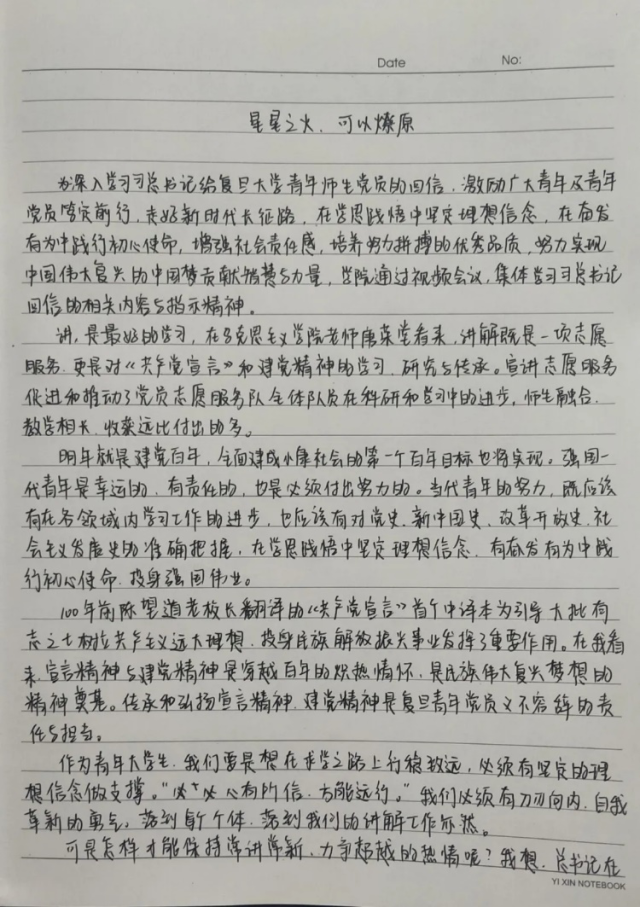 Date No:
星星之火、可以燎原
为深入学习习总书记给复旦大学青年师生党员的回信，激励广大青年及青年
党员笃定前行，走好新时代长征路，在学思践悟中坚定理想信念，在奋发
有为中践行初心使命，增强社会责任感，培养努力拼搏的优秀品质，努力实现
中国伟大复兴的中国梦贡献智慧与力量，学院通过视频会议，集体学习习总书记
回信的相关内容与指示精神。
讲，是最好的学习，在马克思主义学院老师唐荣堂看来，讲解既是一项志愿
服务、更是对《共产党宣言》和建党精神的学习、研究与传承。宣讲志愿服务
促进和推动了党员志愿服务队全体队员在科研和学习中的进步，师生融合、
教学相长、收获远比付出的多。
明年就是建党百年，全面建成小康社会的第一个百年目标也将实现。强国一
代青年是幸运的、有责任的，也是必须付出努力的。当代青年的努力，既应该
有在各领域内学习工作的进步，也应该有对党史、新中国史、改革开放史、社
会主义发展史的准确把握，在学思践悟中坚定理想信念，有奋发有为中践
行初心使命、投身强国伟业。
100年前陈望道老校长翻译的《共产党宣言》首个中译本为引导大批有
志之士树立共产主义远大理想、投身民族解放振兴事业发挥了重要作用。在我看
来，宣言精神与建党精神是穿越百年的炽热情怀，是民族伟大复兴梦想的
精神奠基。传承和弘扬宣言精神、建党精神是复旦青年党员义不容辞的责
任与担当。
作为青年大学生，我们要是想在求学之路上行稳致远，必须有坚定的理
想信念做支撑。"心有所信，方能远行。"我们必须有刀刃向内、自我
革新的勇气，落到每个个体、落到我们的讲解工作亦然。
可是怎样才能保持常讲常新、力争超越的热情呢？我想，总书记在
YI XIN NOTEBOOK